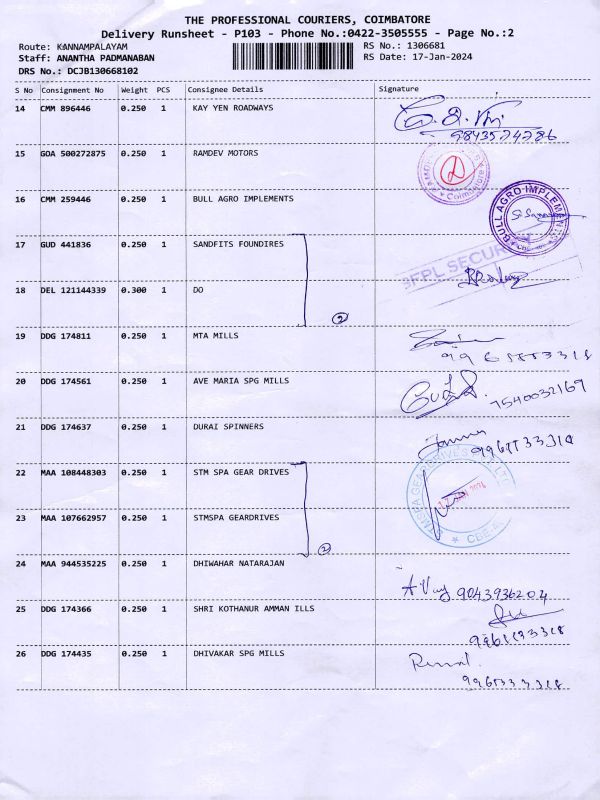 THE PROFESSIONAL COURIERS, COIMBATORE
Delivery Runsheet - P103 - Phone No.:0422-3505555 - Page No.:2
Route: KANNAMPALAYAM RS No.: 1306681
Staff: ANANTHA PADMANABAN RS Date: 17-Jan-2024
DRS No.: DCJB130668102
S No Consignment No Weight PCS Consignee Details Signature
14 CMM 896446 0.250 1 KAY YEN ROADWAYS
9843524286
15 GOA 500272875 0.250 1 RAMDEV MOTORS
Coimbatore
16 CMM 259446 0.250 1 BULL AGRO IMPLEMENTS
BULL AGRO IMPLEMENTS
17 GUD 441836 0.250 1 SANDFITS FOUNDIRES
SFPL SECURITY
18 DEL 121144339 0.300 1 DO
2
19 DDG 174811 0.250 1 MTA MILLS
20 DDG 174561 0.250 1 AVE MARIA SPG MILLS
7540032167
21 DDG 174637 0.250 1 DURAI SPINNERS
22 MAA 108448303 0.250 1 STM SPA GEAR DRIVES
STMSPA GEARDRIVES
23 MAA 107662957 0.250 1 STMSPA GEARDRIVES
2
24 MAA 944535225 0.250 1 DHIWAHAR NATARAJAN
9043936204
25 DDG 174366 0.250 1 SHRI KOTHANUR AMMAN ILLS
26 DDG 174435 0.250 1 DHIVAKAR SPG MILLS